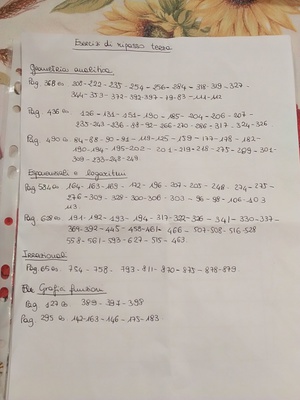 Esercizi di ripasso terza
Geometria analitica
Pag. 368 es. 208-222-235-254-256-284-318-319-327-
344-353-372-392-397-79-83-111-112
Pag. 436 es. 126-131-151-190-185-204-206-207-
235-243-236-78-92-266-270-286-317-324-326
Pag. 490 es. 84-88-90-91-119-125-159-177-178-182-
190-194-195-202-201-219-218-275-269-301-
309-233-248-249
Esponenziali e logaritmi
Pag. 534 es. 164-163-169-172-196-207-205-248-274-275-
276-309-328-300-306-303-96-98-106-103
113
Pag. 628 es. 191-192-193-194-317-322-326-341-330-337-
369-392-445-455-461-466-507-508-516-528
558-561-593-627-515-463
Irrazionali
Pag. 65 es. 754-758-793-811-870-875-878-879
Grafici funzioni
Pag. 127 es. 389-391-398
Pag. 295 es. 142-163-146-175-183